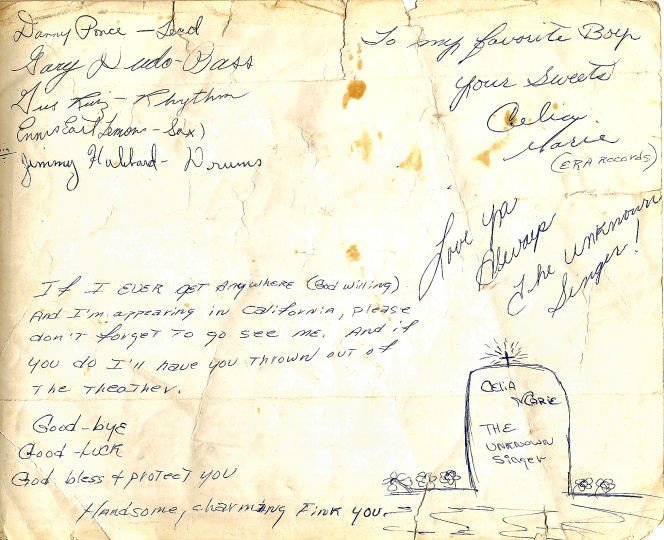 Danny Ponce - Lead
Gary Ludo - Bass
Gus Ruiz - Rhythm
Ennis Earl Lemon - Sax)
Jimmy Hubbard - Drums
To my favorite Boy
Your Sweets
Celia
Marie
(ERA Records)
Love ya
Always
The unknown
Singer!
If I EVER get Anywhere (God willing)
And I'm appearing in California, please
don't forget to go see me. And if
you do I'll have you thrown out of
The Theather.
Good-bye
Good-luck
God bless & protect you
Handsome, charming Fink you.
Celia
Marie
THE
UNKNOWN
Singer